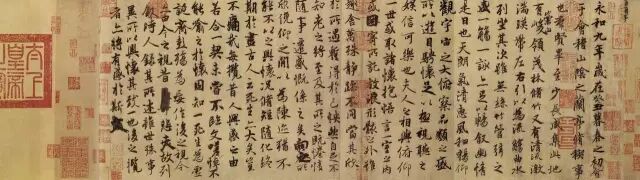 永和九年歲在癸丑暮春之初會
于會稽山陰之蘭亭脩稧事
也群賢畢至少長咸集此地
有崇山峻領茂林脩竹又有清流激
湍暎帶左右引以為流觴曲水
列坐其次雖無絲竹管弦之
盛一觴一詠亦足以暢敘幽情
是日也天朗氣清惠風和暢仰
觀宇宙之大俯察品類之盛
所以遊目騁懷足以極視聽之
娛信可樂也夫人之相與俯仰
一世或取諸懷抱悟言一室之內
或因寄所託放浪形骸之外雖
趣舍萬殊靜躁不同當其欣
於所遇蹔得於己怏然自足不
知老之將至及其所之既惓情
隨事遷感慨係之矣向之所
欣俛仰之閒以為陳迹猶不
能不以之興懷況脩短隨化終
期於盡古人云死生亦大矣豈
不痛哉每攬昔人興感之由
若合一契未嘗不臨文嗟悼不
能喻之於懷固知一死生為虛
誕齊彭殤為妄作後之視今
亦由今之視昔悲夫故列
敘時人錄其所述雖世殊事
異所以興懷其致一也後之攬
者亦將有感於斯文
太上
皇帝